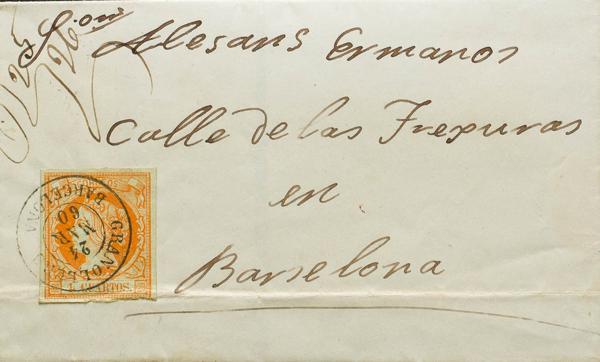 Alesans Ermanos
Calle de las Frexuras
en
Barselona
GRANOLLE
BARCELONA
24
MAR
60
4 CUARTOS.